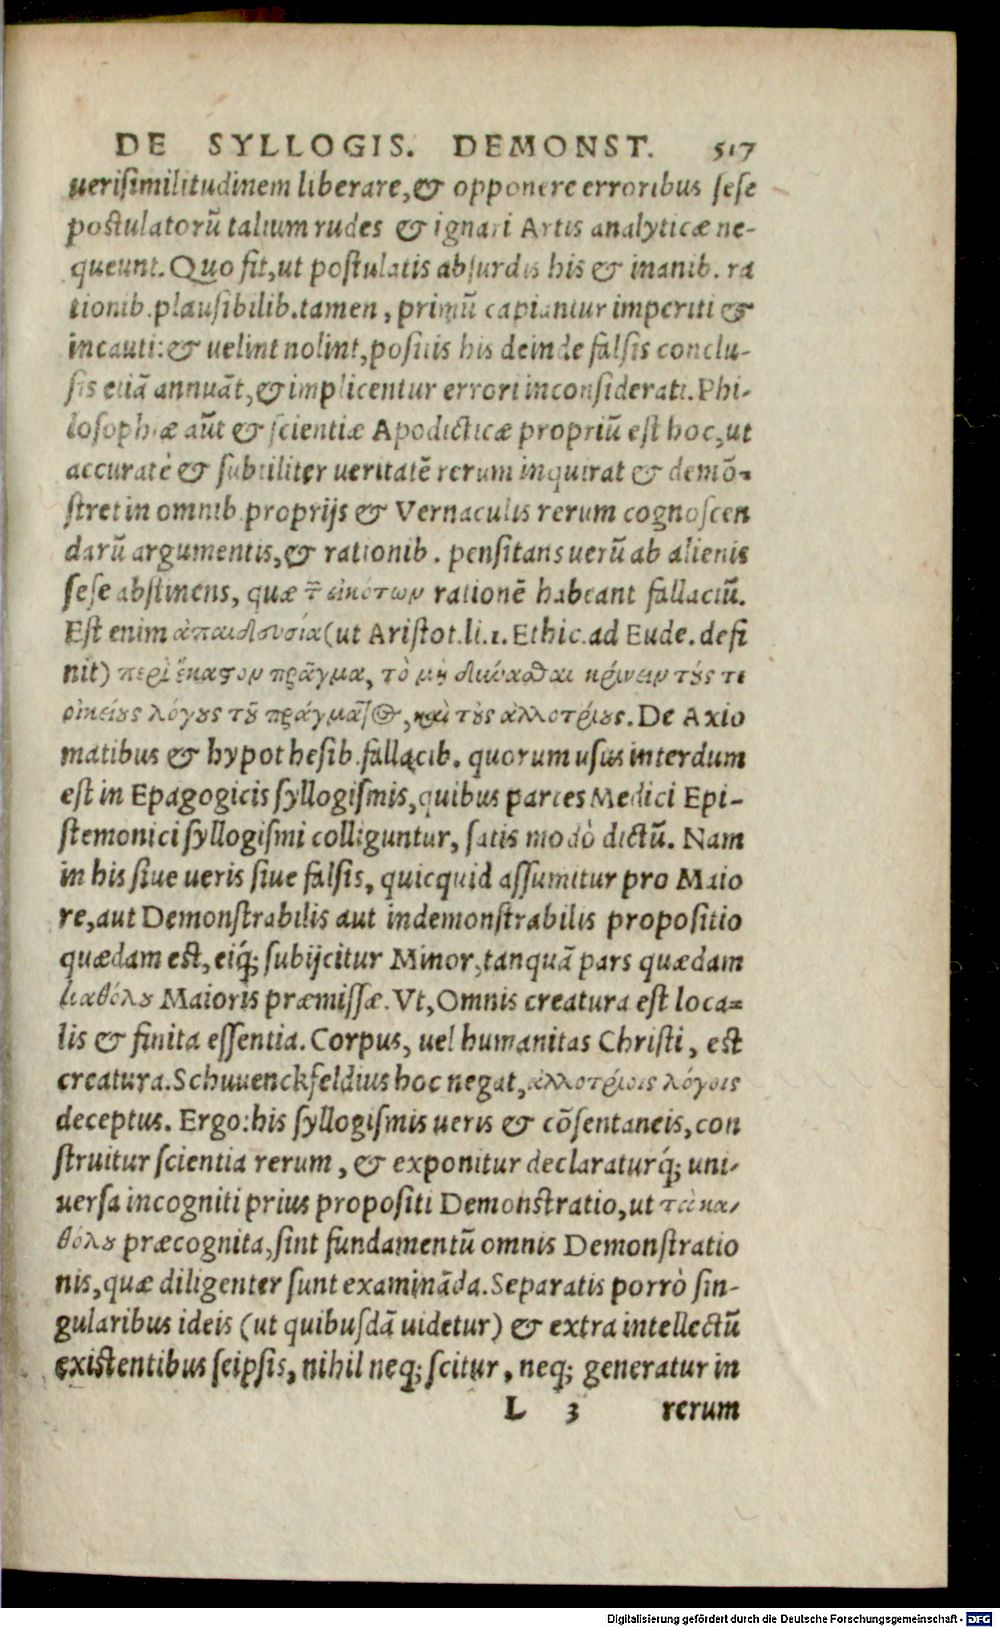 DE SYLLOGIS. DEMONST. 517
uerisimilitudinem liberare, & opponere erroribus sese
postulatorũ talium rudes & ignari Artis analyticæ ne-
queunt. Quo fit, ut postulatis absurdis his & inanib. ra
tionib. plausibilib. tamen, primũ capiantur imperiti &
incauti: & uelint nolint, positis his deinde falsis conclu-
sis etiã annuãt, & implicentur errori inconsiderati. Phi-
losophiæ aũt & scientiæ Apodicticæ propriũ est hoc, ut
accuratè & subtiliter ueritatẽ rerum inquirat & demõ-
stret in omnib. proprijs & Vernaculis rerum cognoscen
darũ argumentis, & rationib. pensitans uerũ ab alienis
sese abstinens, quæ τ εἰκότων rationẽ habeant fallaciũ.
Est enim ἀπαιδευσία (ut Aristot. li. 1. Ethic. ad Eude. defi
nit) περὶ ἕκαστον πρᾶγμα, τὸ μὴ δύνασθαι κρίνειν τούς τε
οἰκείους λόγους τοῦ πράγματος, καὶ τοὺς ἀλλοτρίους. De Axio
matibus & hypothesib. fallacib. quorum usus interdum
est in Epagogicis syllogismis, quibus partes Medici Epi-
stemonici syllogismi colliguntur, satis modò dictũ. Nam
in his siue ueris siue falsis, quicquid assumitur pro Maio
re, aut Demonstrabilis aut indemonstrabilis propositio
quædam est, eiq́; subijcitur Minor, tanquã pars quædam
καθόλου Maioris præmissæ. Vt, Omnis creatura est loca=
lis & finita essentia. Corpus, uel humanitas Christi, est
creatura. Schuuenckfeldius hoc negat, ἀλλοτρίοις λόγοις
deceptus. Ergo: his syllogismis ueris & cõsentaneis, con
struitur scientia rerum, & exponitur declaraturq́; uni-
uersa incogniti prius propositi Demonstratio, ut τὰ κα-
θόλου præcognita, sint fundamentũ omnis Demonstratio
nis, quæ diligenter sunt examinãda. Separatis porrò sin-
gularibus ideis (ut quibusdã uidetur) & extra intellectũ
existentibus seipsis, nihil neq; scitur, neq; generatur in
L 3 rerum
Digitalisierung gefördert durch die Deutsche Forschungsgemeinschaft - DFG